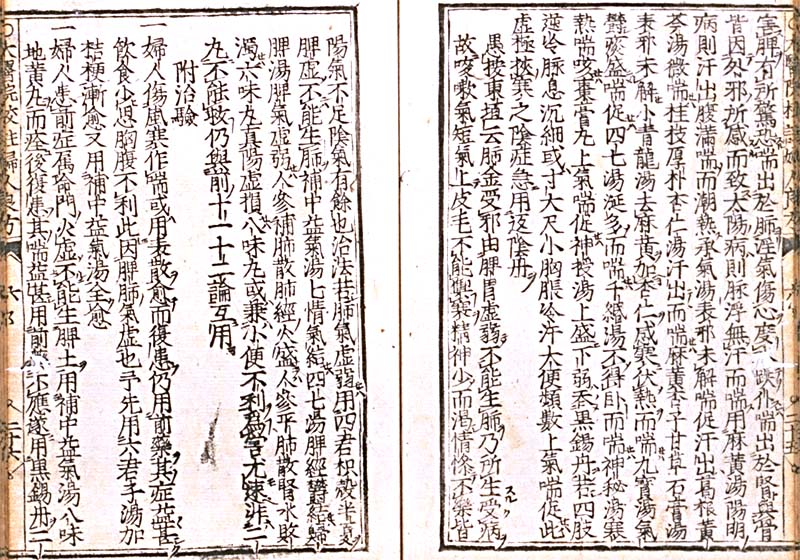 害脾有所驚恐喘出於肺淫氣傷心度水跌仆喘出於腎與骨
皆因外邪所感而致太陽病則脉浮無汗而喘用麻黄湯陽明
病則汗出腹滿喘而潮熱承氣湯表邪未解喘促汗出葛根黄
芩湯微喘桂枝厚朴杏仁湯汗出而喘麻黄杏子甘草石膏湯
表邪未解小青龍湯去麻黄加杏仁感寒伏熱而喘九寶湯氣
欝痰盛喘促四七湯涎多而喘千緡湯不得卧而喘神秘湯寒
熱喘咳棗膏丸上氣喘促神授湯上盛下弱吞黒錫丹若四肢
逆冷脉息沉細或寸大尺小胸脹冷汗大便頻數上氣喘促此
虛極挾寒之陰症急用返陰丹
愚按東垣云肺金受邪由脾胃虛弱不能生肺乃所生受病
故咳嗽氣短氣上皮毛不能禦寒精神少而渴情慘不樂皆
陽氣不足陰氣有餘也治法若肺氣虛弱用四君枳殼半夏
脾虛不能生肺補中益氣湯七情氣結四七湯脾經欝結歸
脾湯脾氣虛弱人參補肺散肺經火盛人參平肺散腎水敗
濁六味丸真陽虛損八味丸或兼小便不利爲害尤速非二
丸不能救仍與前十一十二論互用
附治驗
一婦人傷風寒作喘或用表散愈而復患仍用前藥其症益甚
飲食少思胸腹不利此因脾肺氣虛也予先用六君子湯加
桔梗漸愈又用補中益氣湯全愈
一婦人患前症屬命門火虛不能生脾土用補中益氣湯八味
地黄丸而痊後復患其喘益甚用前藥不應遂用黒錫丹二